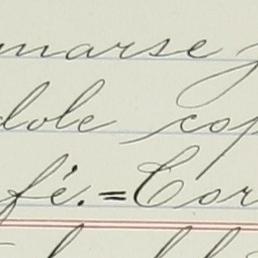 marse
dole cop
fé.=Cor